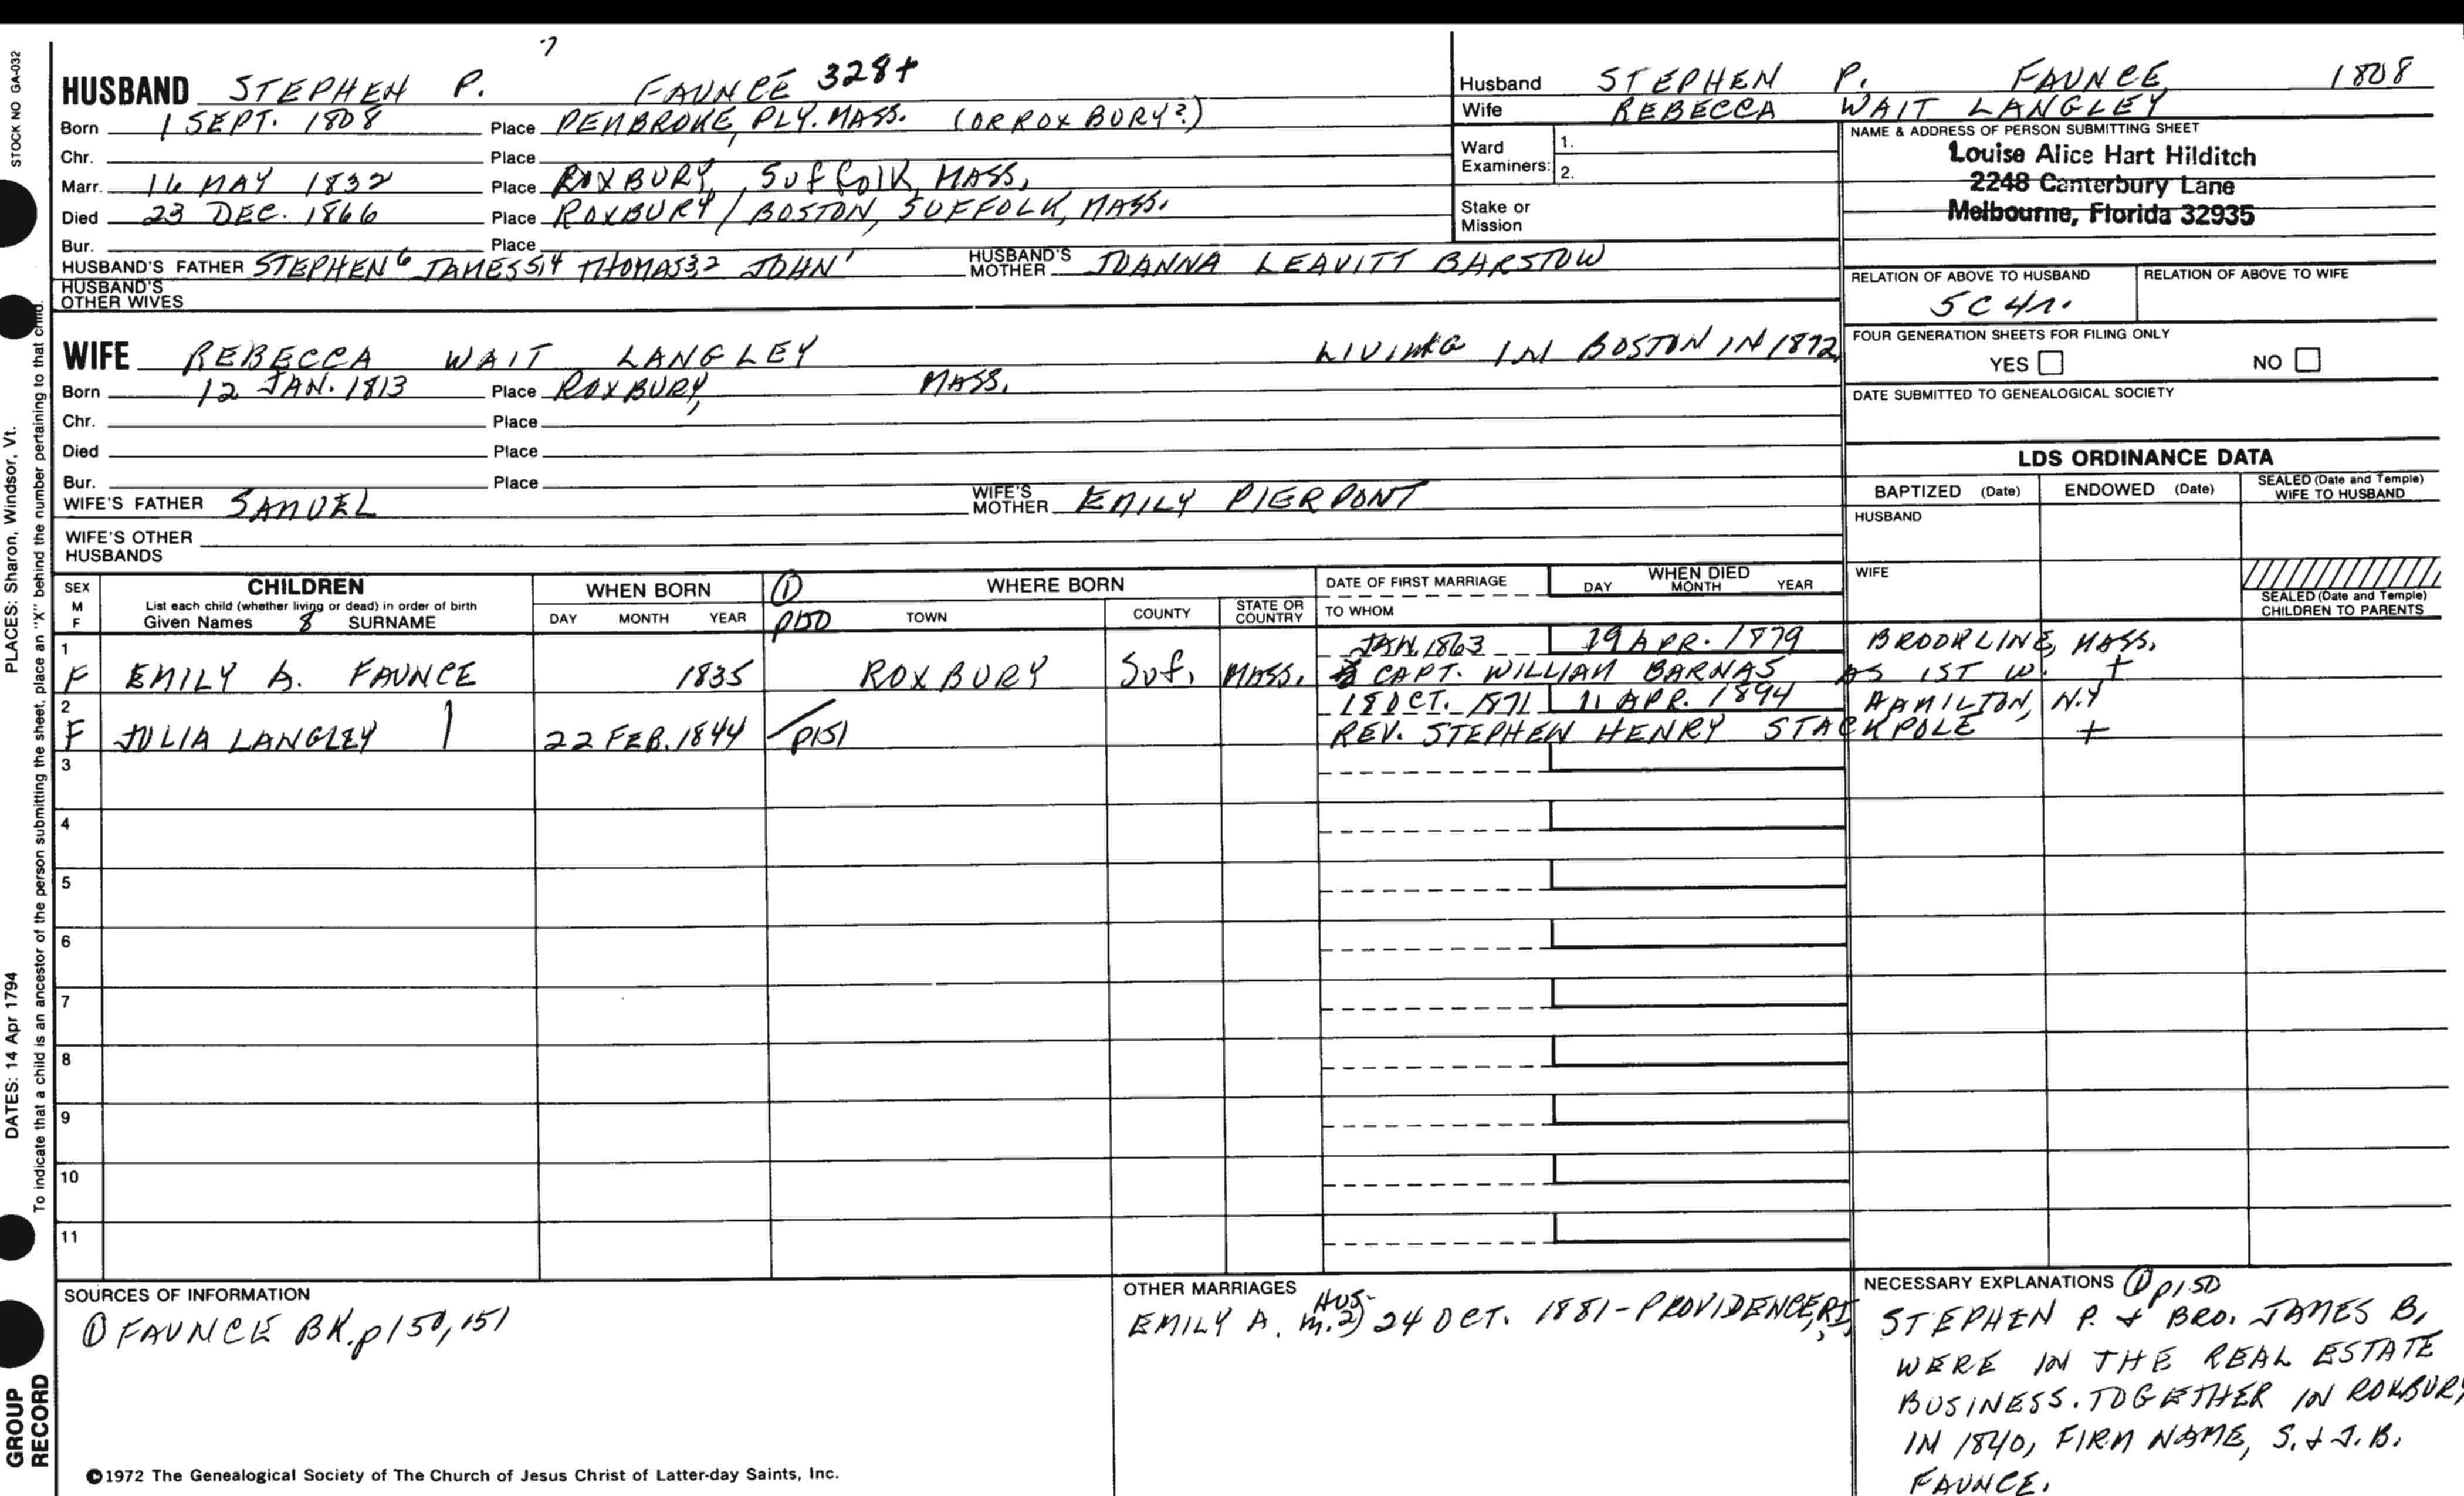 7
HUSBAND STEPHEN P. FAUNCE 328+
Born 1 SEPT. 1808 Place PEMBROKE, PLY. MASS. (OR ROXBURY?)
Chr. Place
Marr. 16 MAY 1832 Place ROXBURY, SUFFOLK, MASS.
Died 23 DEC. 1866 Place ROXBURY / BOSTON, SUFFOLK, MASS.
Bur. Place
HUSBAND'S FATHER STEPHEN6 JAMES5,4 THOMAS3,2 JOHN1 HUSBAND'S MOTHER JOANNA LEAVITT BARSTOW
HUSBAND'S OTHER WIVES
WIFE REBECCA WAIT LANGLEY LIVING IN BOSTON IN 1872
Born 12 JAN. 1813 Place ROXBURY, MASS.
Chr. Place
Died Place
Bur. Place
WIFE'S FATHER SAMUEL WIFE'S MOTHER EMILY PIERPONT
WIFE'S OTHER HUSBANDS
Husband STEPHEN P. FAUNCE, 1808
Wife REBECCA WAIT LANGLEY
Ward Examiners: 1.
2.
Stake or Mission
NAME & ADDRESS OF PERSON SUBMITTING SHEET
Louise Alice Hart Hilditch
2248 Canterbury Lane
Melbourne, Florida 32935
RELATION OF ABOVE TO HUSBAND RELATION OF ABOVE TO WIFE
5C 4r.
FOUR GENERATION SHEETS FOR FILING ONLY
YES NO
DATE SUBMITTED TO GENEALOGICAL SOCIETY
LDS ORDINANCE DATA
BAPTIZED (Date) ENDOWED (Date) SEALED (Date and Temple) WIFE TO HUSBAND
HUSBAND
WIFE
SEALED (Date and Temple) CHILDREN TO PARENTS
SEX M F
CHILDREN
List each child (whether living or dead) in order of birth
Given Names 8 SURNAME
WHEN BORN
DAY MONTH YEAR
① p150
WHERE BORN
TOWN COUNTY STATE OR COUNTRY
DATE OF FIRST MARRIAGE
TO WHOM
WHEN DIED
DAY MONTH YEAR
1 JAN. 1863 19 APR. 1879 BROOKLINE, MASS.
F EMILY A. FAUNCE 1835 ROXBURY Suf. MASS. CAPT. WILLIAM BARNAS AS 1ST W. +
2 18 OCT. 1871 11 APR. 1894 HAMILTON, N.Y
F JULIA LANGLEY 22 FEB. 1844 p151 REV. STEPHEN HENRY STACKPOLE +
3
4
5
6
7
8
9
10
11
SOURCES OF INFORMATION
① FAUNCE BK. p150, 151
OTHER MARRIAGES
HUS.
EMILY A. m. 2) 24 OCT. 1881 - PROVIDENCE, RI
NECESSARY EXPLANATIONS ① p150
STEPHEN P. + BRO. JAMES B.
WERE IN THE REAL ESTATE
BUSINESS. TOGETHER IN ROXBURY
IN 1840, FIRM NAME, S. + J. B.
FAUNCE.
©1972 The Genealogical Society of The Church of Jesus Christ of Latter-day Saints, Inc.
STOCK NO GA-032
PLACES: Sharon, Windsor, Vt.
DATES: 14 Apr 1794
To indicate that a child is an ancestor of the person submitting the sheet, place an "X" behind the number pertaining to that child.
GROUP RECORD